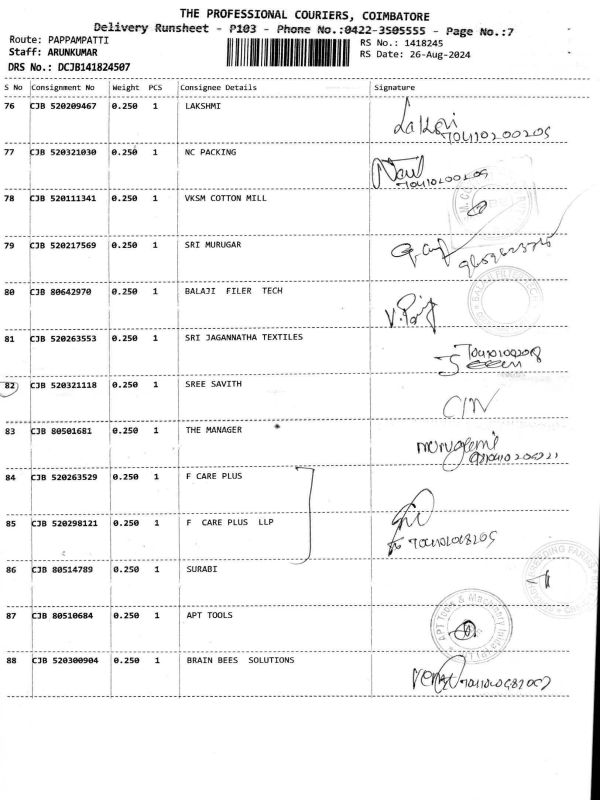 THE PROFESSIONAL COURIERS, COIMBATORE
Delivery Runsheet - P103 - Phone No.:0422-3505555 - Page No.:7
Route: PAPPAMPATTI
RS No.: 1418245
Staff: ARUNKUMAR
RS Date: 26-Aug-2024
DRS No.: DCJB141824507
S No Consignment No Weight PCS Consignee Details Signature
76 CJB 520209467 0.250 1 LAKSHMI
77 CJB 520321030 0.250 1 NC PACKING
78 CJB 520111341 0.250 1 VKSM COTTON MILL
79 CJB 520217569 0.250 1 SRI MURUGAR
80 CJB 80642970 0.250 1 BALAJI FILER TECH
81 CJB 520263553 0.250 1 SRI JAGANNATHA TEXTILES
82 CJB 520321118 0.250 1 SREE SAVITH
83 CJB 80501681 0.250 1 THE MANAGER
84 CJB 520263529 0.250 1 F CARE PLUS
85 CJB 520298121 0.250 1 F CARE PLUS LLP
86 CJB 80514789 0.250 1 SURABI
87 CJB 80510684 0.250 1 APT TOOLS
APT Tools & Machinery
88 CJB 520300904 0.250 1 BRAIN BEES SOLUTIONS